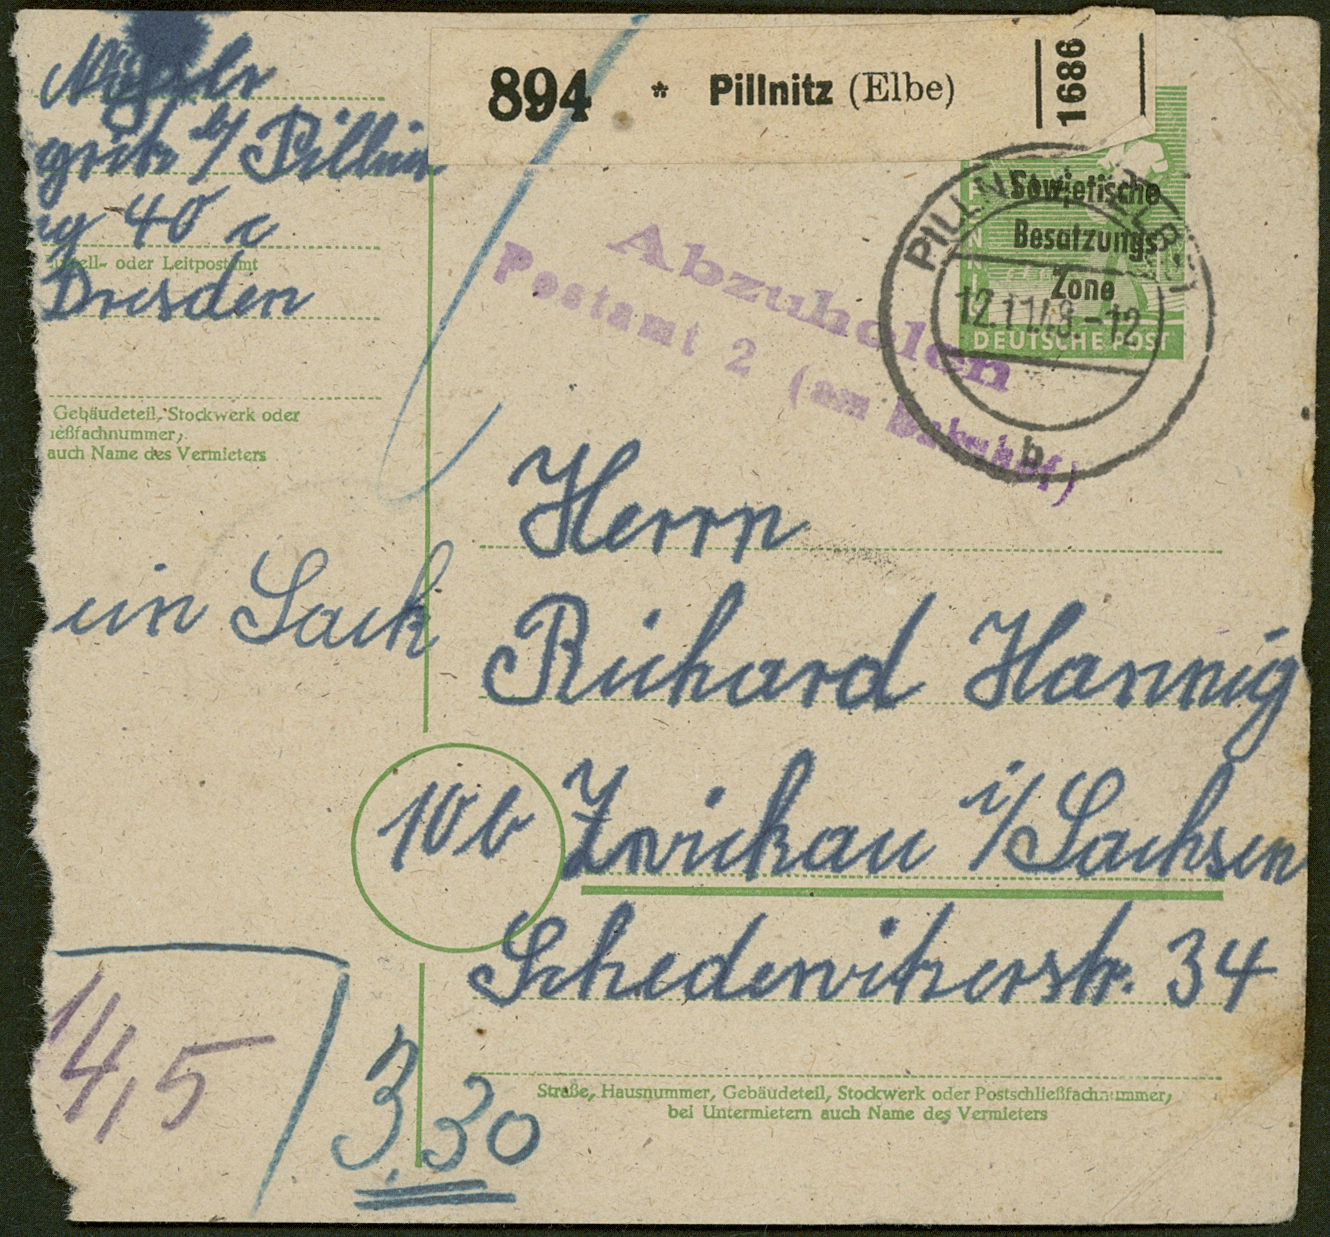 894 * Pillnitz (Elbe) 1686
b/ Pillnitz
40 c
oder Leitpostamt
Dresden
Gebäudeteil, Stockwerk oder
ießfachnummer,
auch Name des Vermieters
ein Sack
PILLNITZ (ELBE)
12.11.48.-12
b
Sowjetische
Besatzungs
Zone
DEUTSCHE POST
Abzuholen
Postamt 2 (am Bahnhof)
Herrn
Richard Hannig
10b Zwickau i/Sachsen
Schedewitzerstr. 34
Straße, Hausnummer, Gebäudeteil, Stockwerk oder Postschließfachnummer,
bei Untermietern auch Name des Vermieters
14,5
3,30